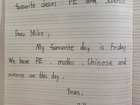 favourite classes PE and science
Dear Mike,
My favourite day is Friday.
We have PE, maths, Chinese and
science on this day.
Yours,